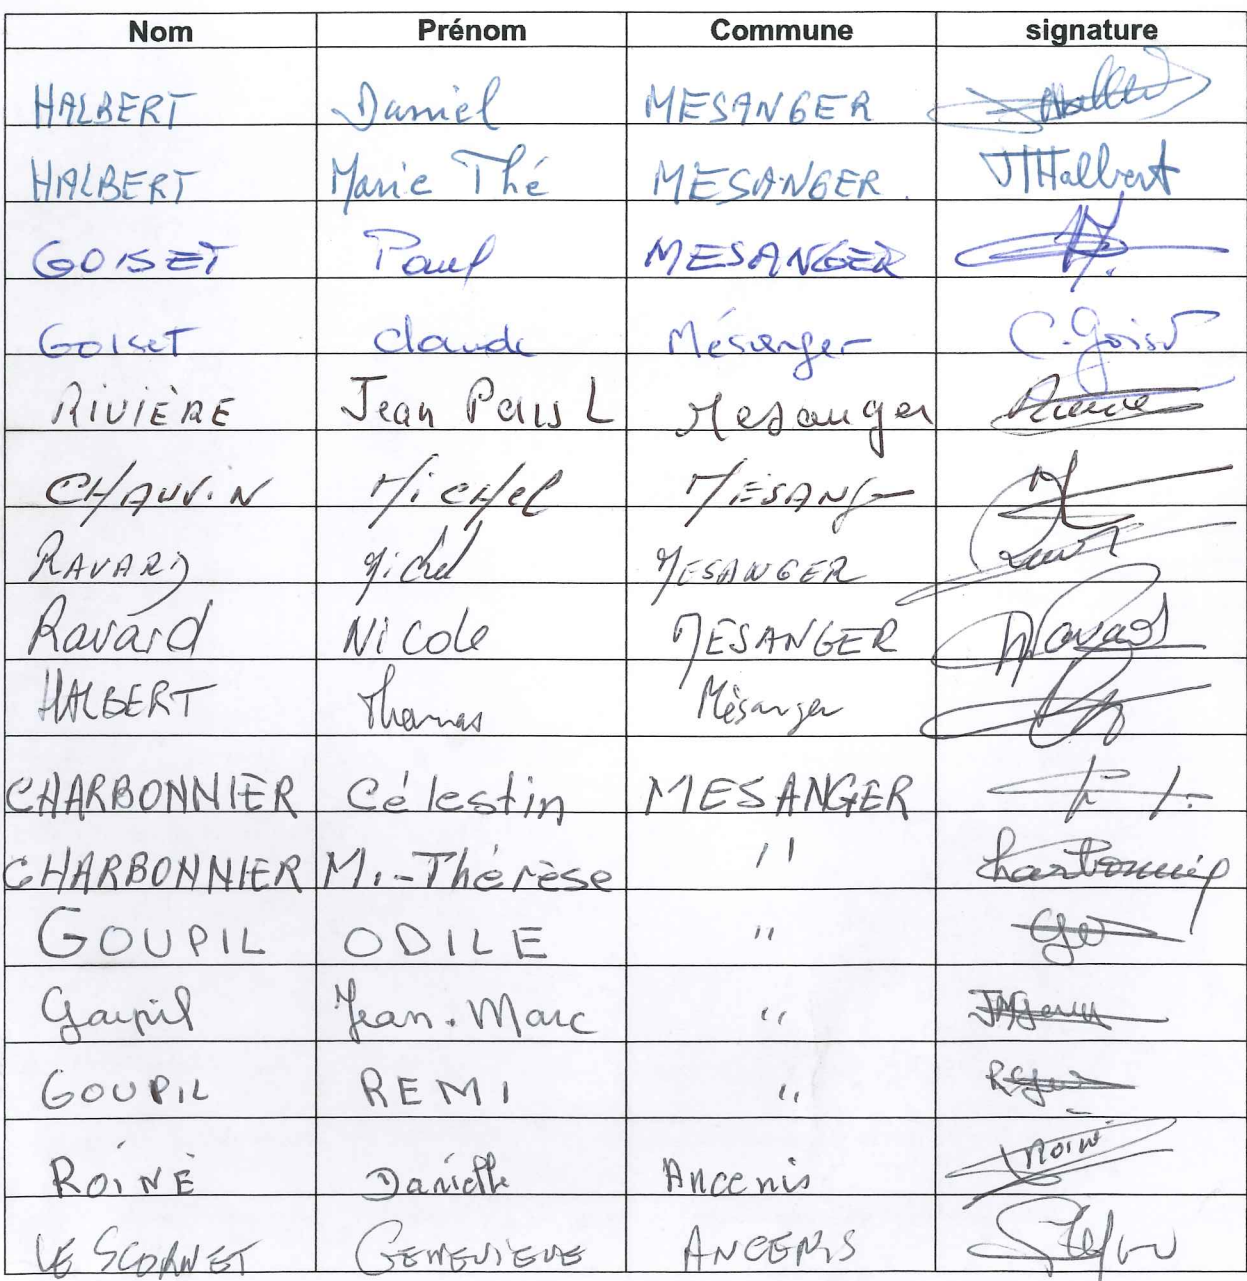 Nom Prénom Commune signature
HALBERT Daniel MESANGER
HALBERT Marie Thé MESANGER. MTHalbert
GOISET Paul MESANGER
GOISET Claude Mésanger C. Goiset
RIVIÈRE Jean Paul Mesanger
CHAUVIN Michel MESANG
RAVARD Michel MESANGER
Ravard Nicole MESANGER
HALBERT Thomas Mésanger
CHARBONNIER Célestin MESANGER
CHARBONNIER M.-Thérèse " Charbonnier
GOUPIL ODILE "
Goupil Jean-Marc "
GOUPIL REMI "
ROINÉ Danielle Ancenis
LE SCORNET GENEVIEVE ANCENIS